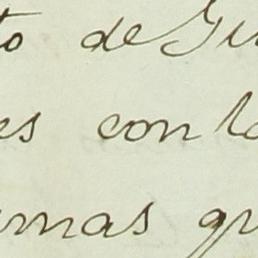 to de Gi
es con la
mas qu